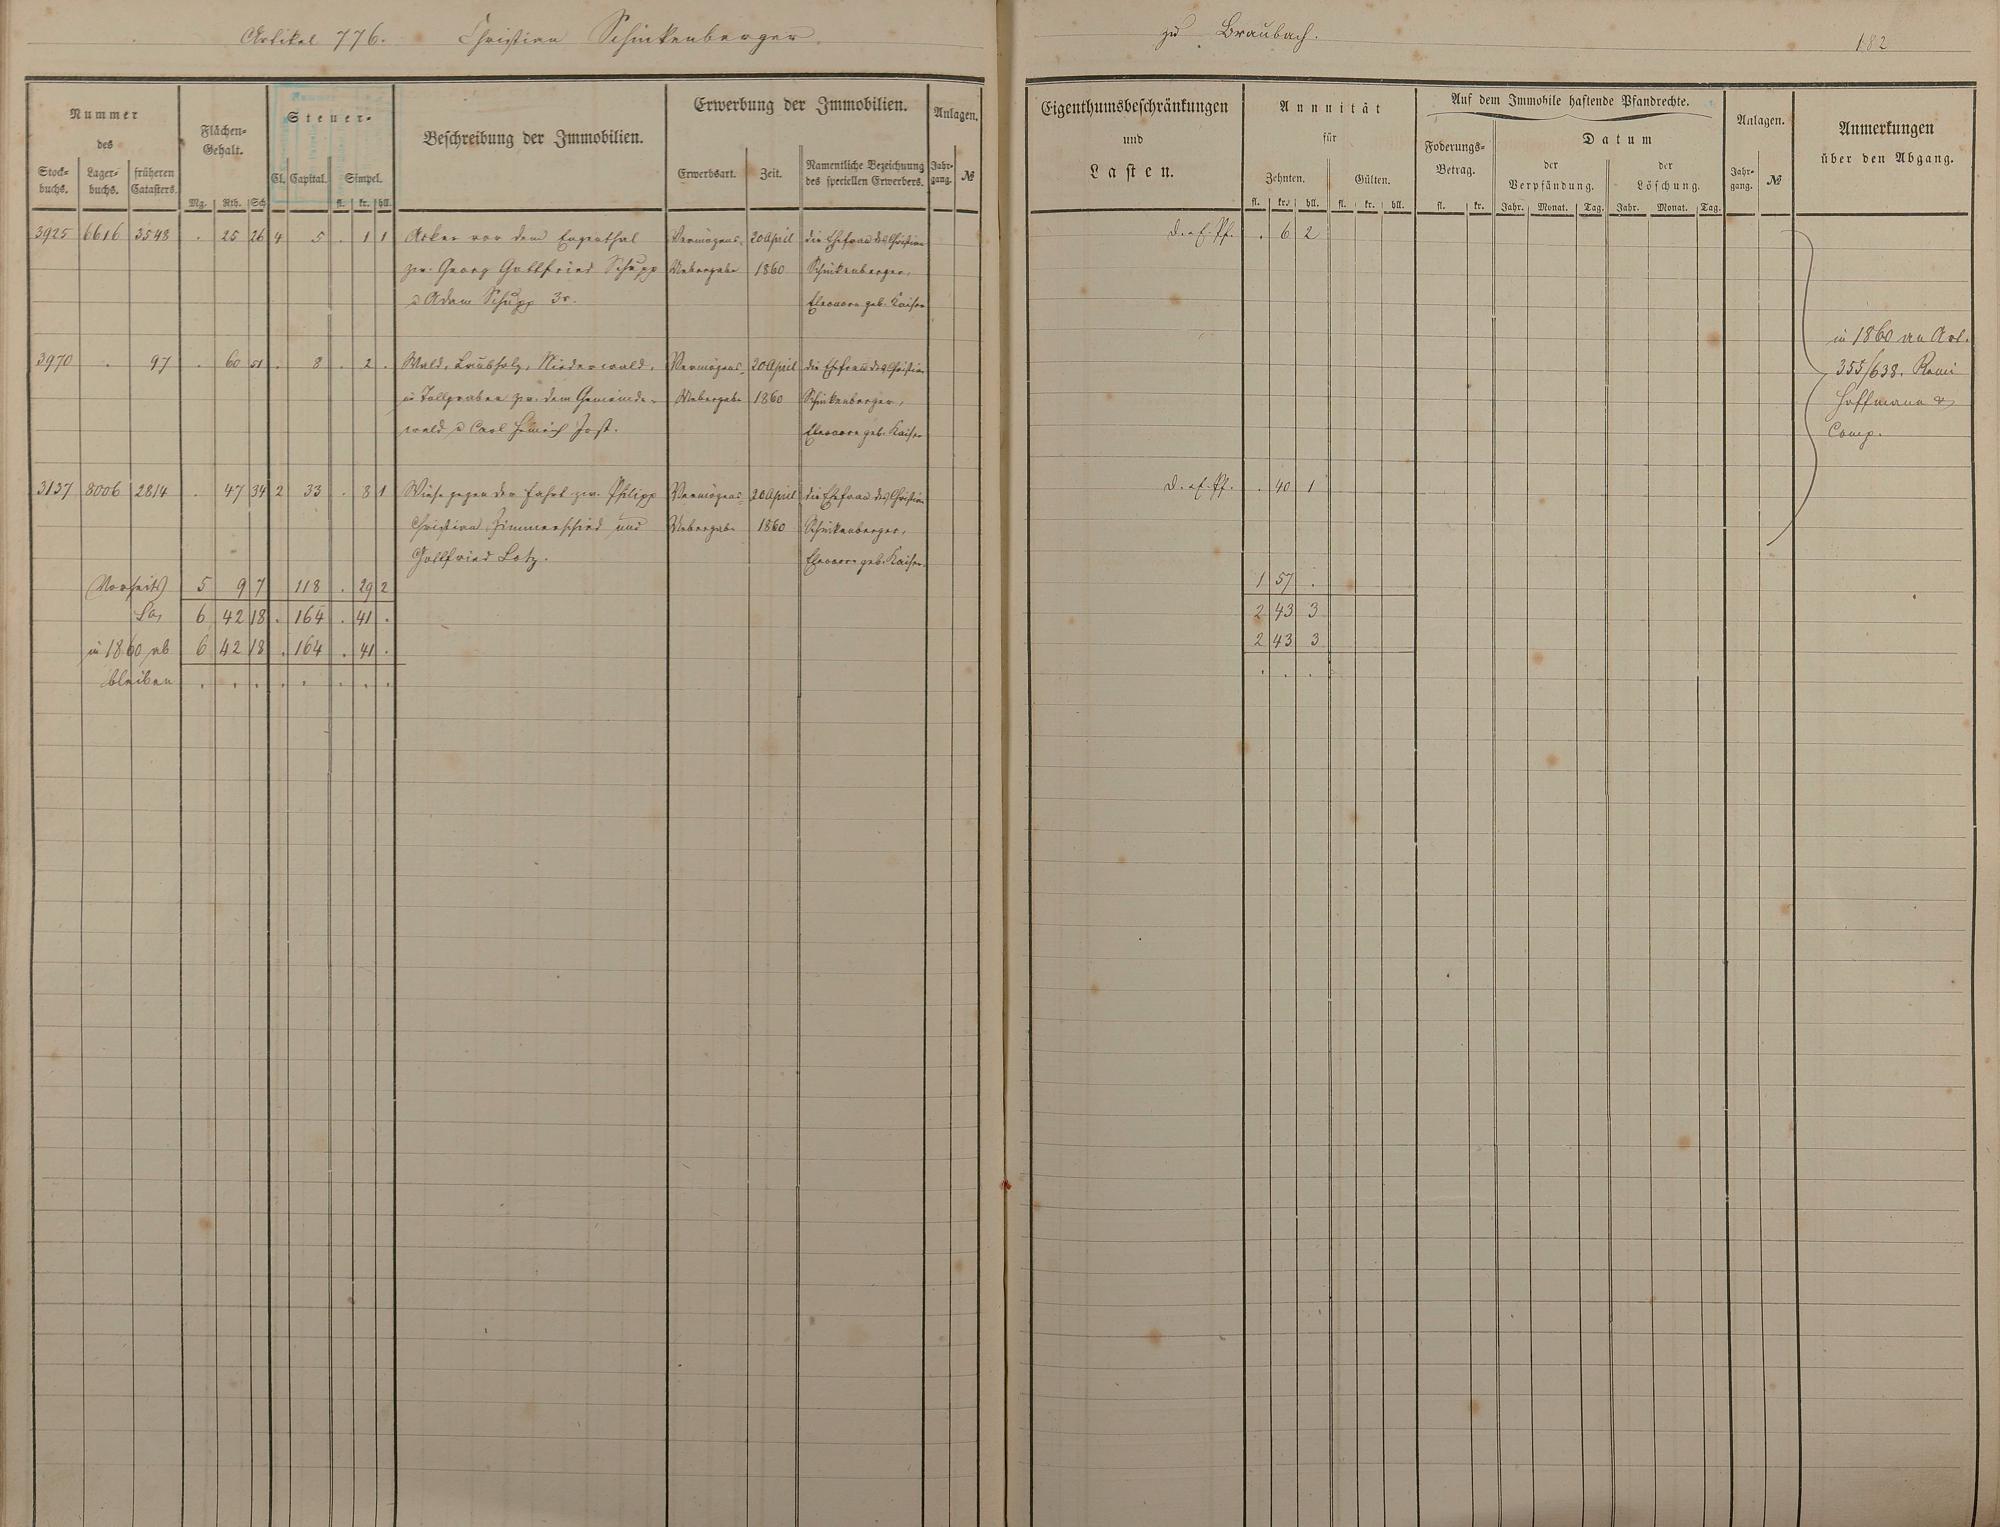 Artikel 776. Christian Schinkenberger
zu Braubach.
182
Nummer
des
Stock-
buchs.
Lager-
buchs.
früheren
Catasters.
Flächen-
Gehalt.
Mg. Rth. Sch
Steuer-
Cl. Capital. Simpel.
fl. kr. hll.
Beschreibung der Immobilien.
Erwerbung der Immobilien.
Erwerbsart. Zeit.
Namentliche Bezeichnung
des speciellen Erwerbers.
Anlagen.
Jahr-
gang. №
Eigenthumsbeschränkungen
und
Lasten.
Annuität
für
Zehnten. Gülten.
fl. kr. hll. fl. kr. hll.
Auf dem Immobile haftende Pfandrechte.
Foderungs-
Betrag.
fl. kr.
Datum
der
Verpfändung.
der
Löschung.
Jahr. Monat. Tag. Jahr. Monat. Tag.
Anlagen.
Jahr-
gang. №
Anmerkungen
über den Abgang.
3925 6616 3548 . 25 26 4 5 . 1 1 Acker vor dem Engenthal Vermögens- 20 April die Ehefrau des Christian . 6 2
zw. Georg Gottfried Schupp Uebergabe 1860 Schinkenberger,
u Adam Schupp 3r. Eleonore geb. Kaiser
3970 . 97 . 60 51 . 8 . 2 . Wald, Laubholz, Niederwald, Vermögens- 20 April die Ehefrau des Christian
zw. dem Gemeinde- Uebergabe 1860 Schinkenberger,
wald u Carl Heinrich Jost. Eleonore geb. Kaiser
3137 8006 2814 . 47 34 2 33 . 8 1 Wiese gegen der Fahrt zw. Philipp Vermögens- 20 April die Ehefrau des Christian . 40 1
Christian Zimmerschied und Uebergabe 1860 Schinkenberger,
Gottfried Lotz. Eleonore geb. Kaiser.
in 1860 an Art.
355/638.
Hoffmann &
Comp.
(Vorseits) 5 9 7 118 . 29 2 1 57 .
Sa, 6 42 18 . 164 . 41 . 2 43 3
in 1860 ab 6 42 18 . 164 . 41 . 2 43 3
bleiben . . . . . . . . . . .